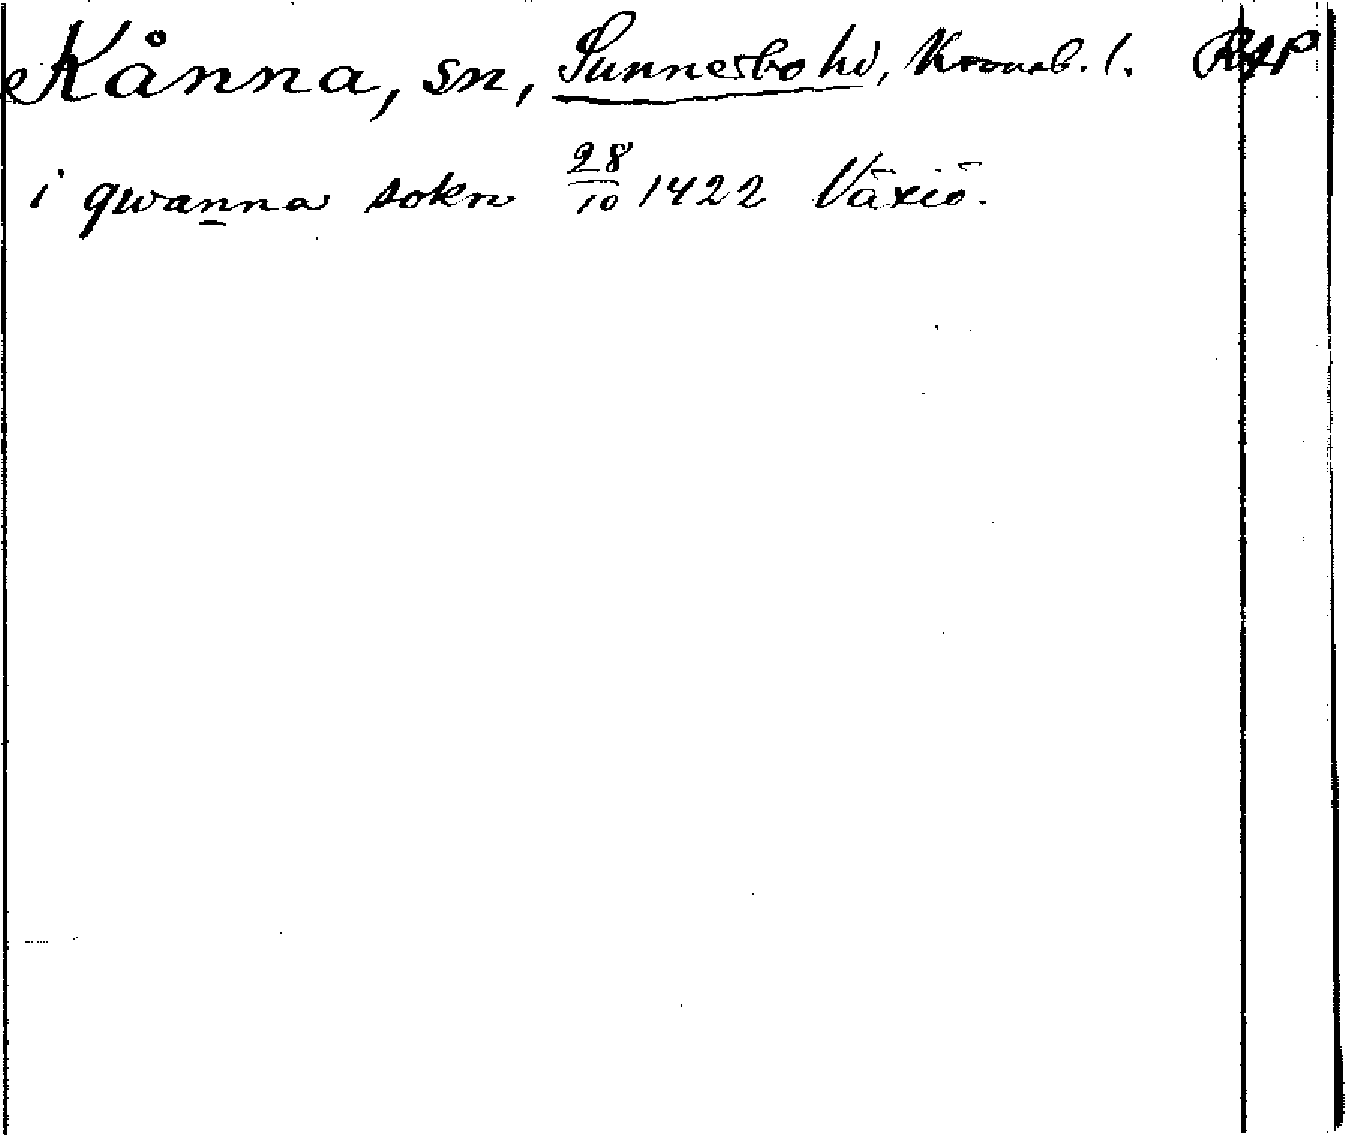 Kånna, sn, Sunnerbo hd, Kronob. l. RAP
i qwanna sokn 28/10 1422 Växiö.